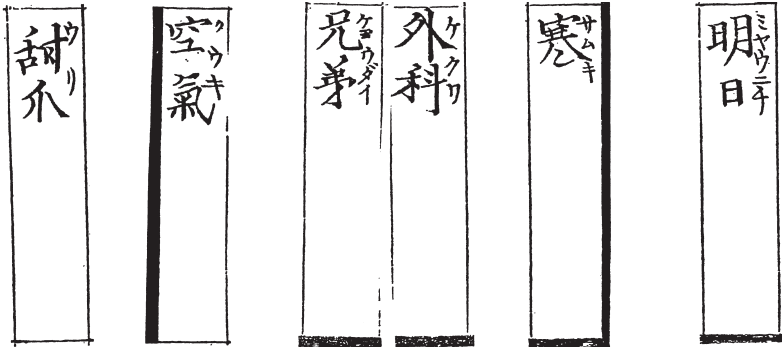 明日
ミヤウニチ
寒
サムキ
外科
ケクワ
兄弟
ケヨウダイ
空氣
クウキ
甜爪
ウリ